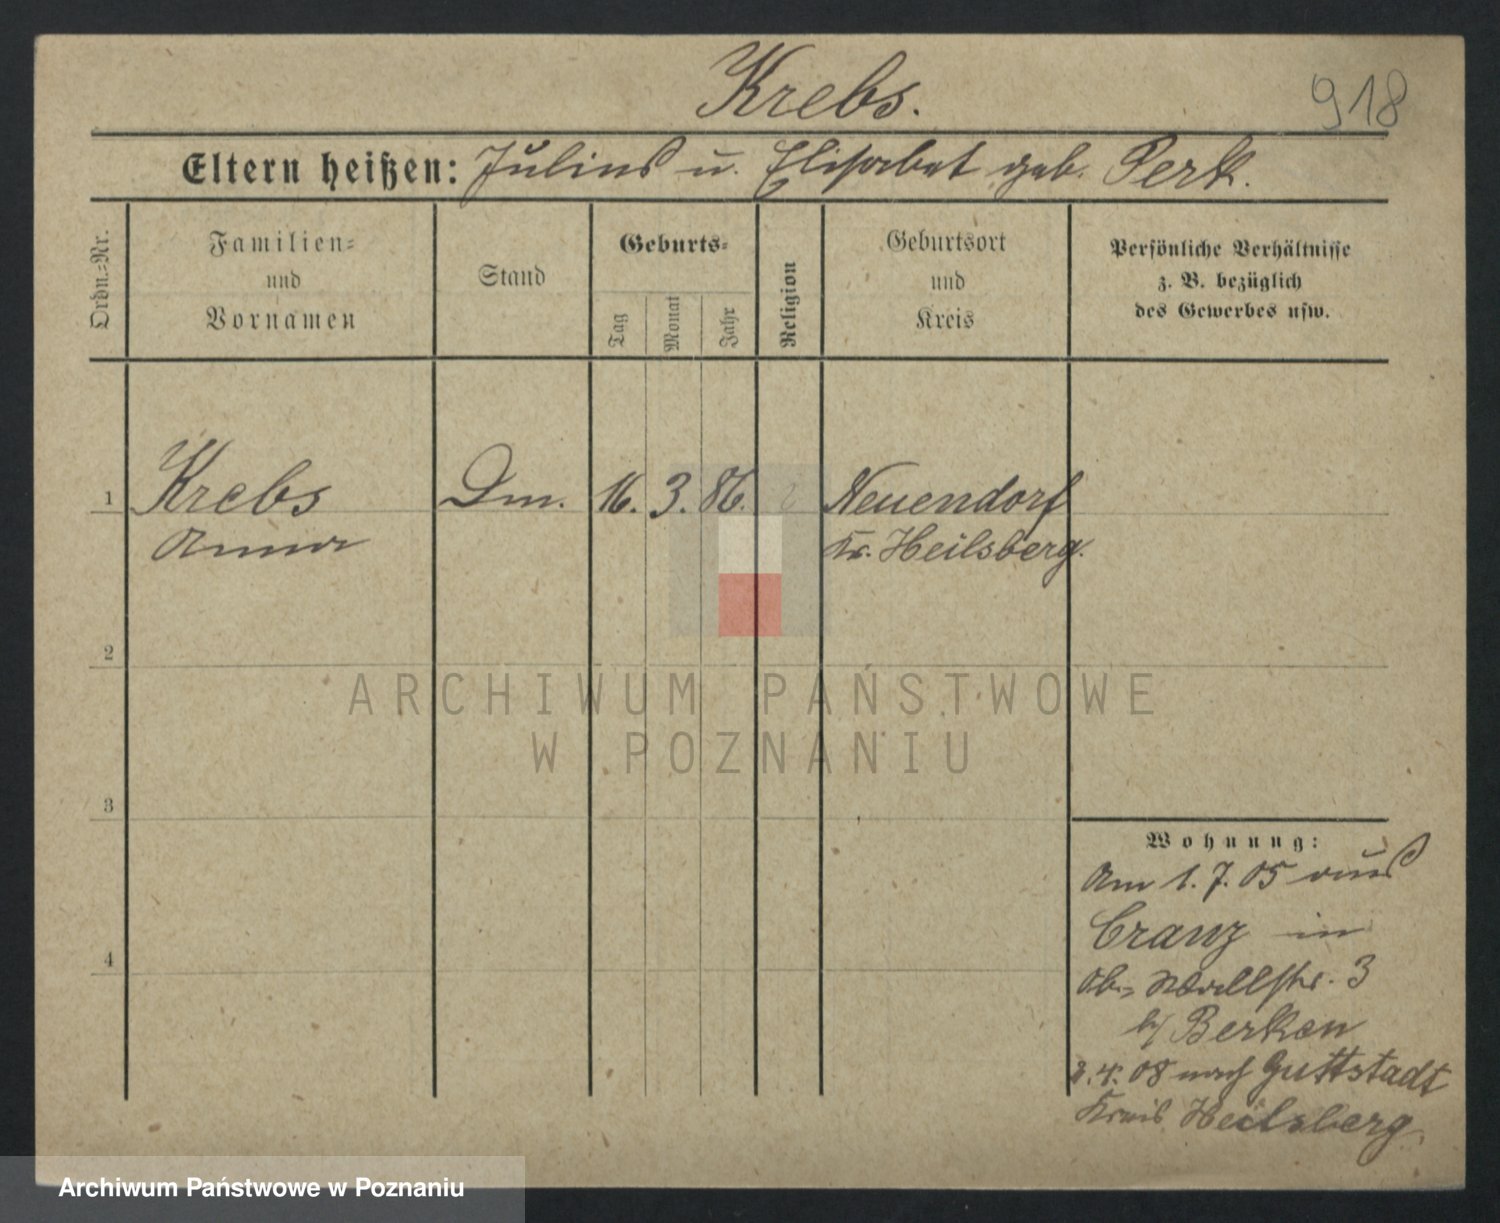 Krebs.
918
Eltern heißen: Julius u. Elisabet geb. Perk.
Ordn.=Nr.
Familien=
und
Vornamen
Stand
Geburts=
Tag
Monat
Jahr
Religion
Geburtsort
und
Kreis
Persönliche Verhältnisse
z. B. bezüglich
des Gewerbes usw.
1 Krebs Dm. 16. 3. 86. Neuendorf
Anna Kr. Heilsberg.
2
ARCHIWUM PAŃSTWOWE
W POZNANIU
3
Wohnung:
Am 1. 7. 05 aus
Cranz in
Ob= Wallstr. 3
b/ Berken
4
2. 4. 08 nach Guttstadt
Kreis Heilsberg.
Archiwum Państwowe w Poznaniu